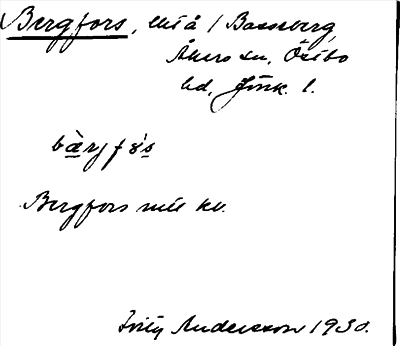 Bergfors, litå / Bassberg,
Åkers sn, Östbo
hd, Jönk. l.
bärjfås
Bergfors mill kv.
Andersson 1930.